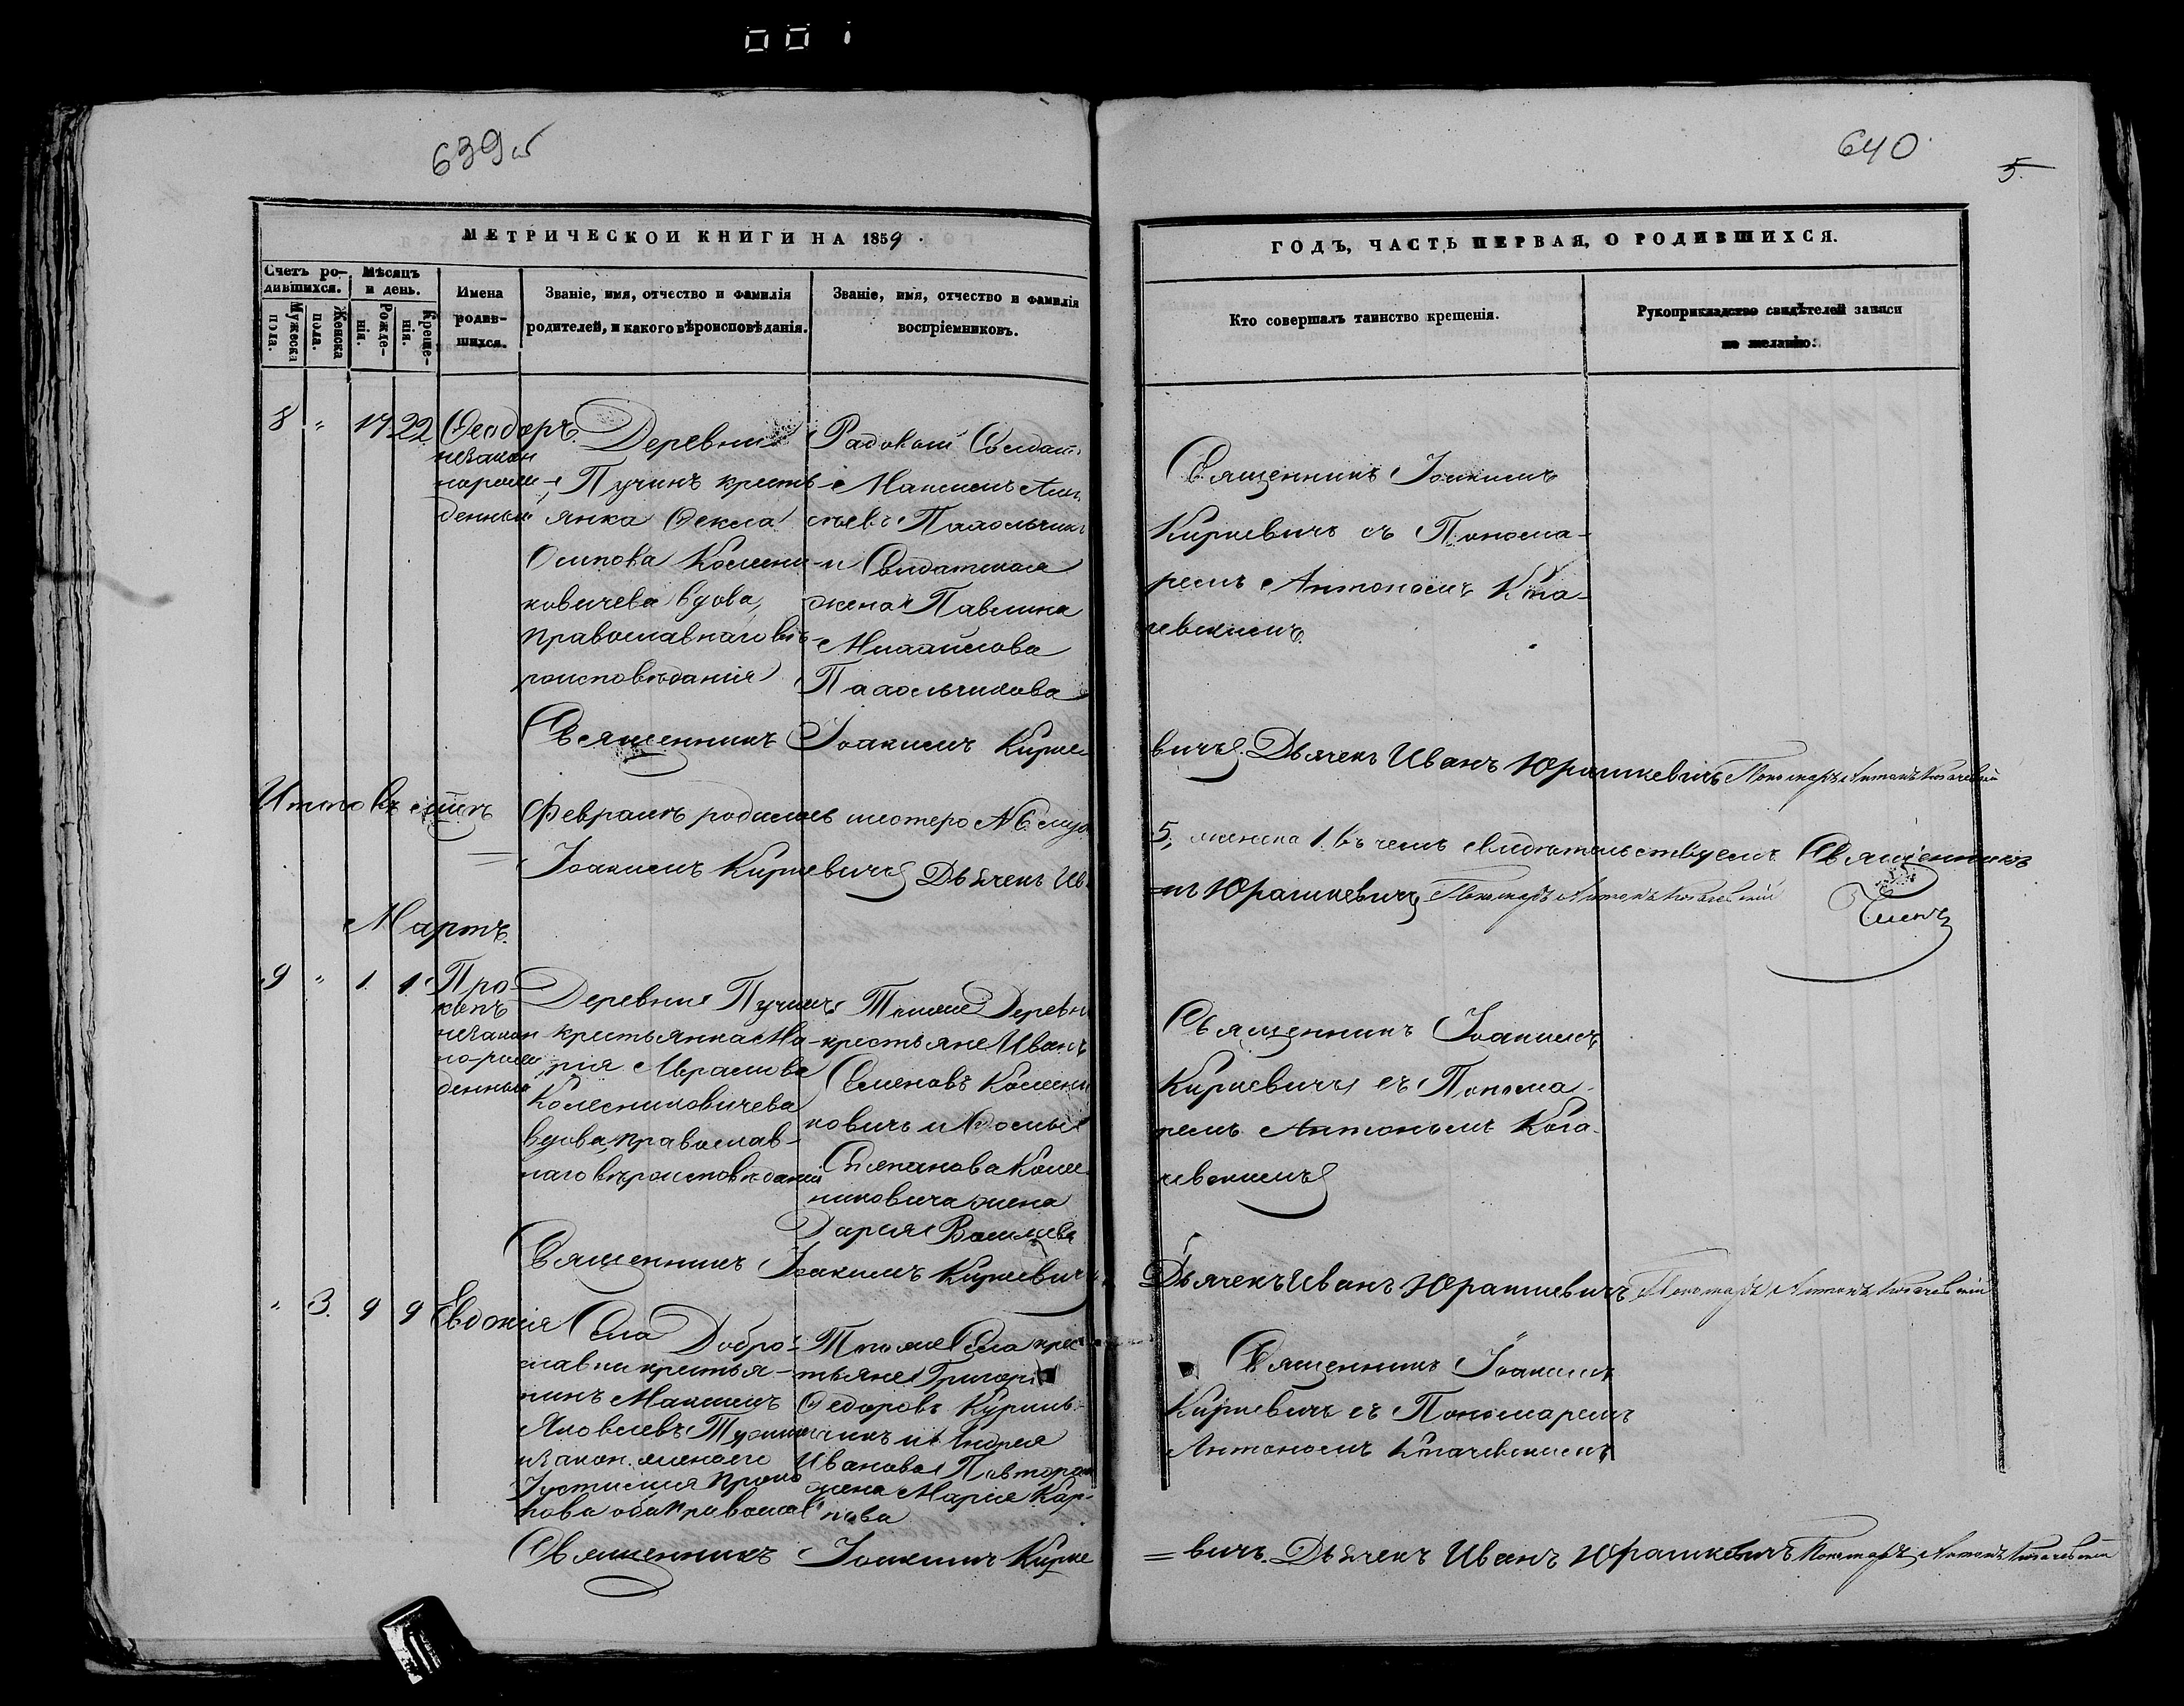 001
639
640
5.
МЕТРИЧЕСКОЙ КНИГИ НА 1859
ГОДЪ, ЧАСТЬ ПЕРВАЯ, О РОДИВШИХСЯ.
Счетъ ро-
дившихся.
Мѣсяцъ
и день.
Мужеска
пола.
Женска
пола.
Рожде-
нія.
Креще-
нія.
Имена
родив-
шихся.
Званіе, имя, отчество и фамилія
родителей, и какого вѣроисповѣданія.
Званіе, имя, отчество и фамилія
воспріемниковъ.
Кто совершалъ таинство крещенія.
Рукоприкладство свидѣтелей записи
по желанію.
8 " 17 22 Ѳеодоръ
незакон
норож-
денный
Деревни
Пучинъ кресть-
янка Ѳекла
Осипова
ковичева вдова,
православнаго вѣ-
роисповѣданія
Рядовой Солдат
Максимъ
и Солдатская
жена Павлина
Михайлова
Пахольчикова
Священникъ Іоакимъ
Киркевичъ съ Понома-
ремъ Антономъ
Священникъ Іоакимъ Кирке
вичъ. Дьячекъ Иванъ Юрашкевичъ Пономарь Антонъ
Итого въ
Февралѣ родилось шестеро № 6 муж
5, женска 1. въ чемъ свидѣтельствуемъ Священникъ
Іоакимъ Киркевичъ Дьячекъ Ив
нъ Юрашкевичъ Пономарь Антонъ
Мартъ.
9 " 1. 1. Про-
копъ
незакон
но-рож
денный
Деревни Пучинъ
крестьянка Ма-
рія Абрамова
Колесниковичева
вдова, православ-
наго вѣроисповѣданія
Тойже Деревни
крестьяне Иванъ
Семеновъ Колесни
ковичъ и
Степанова Колес
никовича жена
Дарія Васильева
Священникъ Іоакимъ
Киркевичъ съ Понома-
ремъ Антономъ
Священникъ Іоакимъ Киркевичъ
Дьячекъ Иванъ Юрашкевичъ Пономарь Антонъ
" 3. 9 9 Евдокія
Села Добро-
славки крестья-
нинъ Максимъ
Яковлевъ
и законная его
Іустинія Проко
пова оба православ
Тогоже Села крес
тьяне Григорій
Ѳедоровъ
и Андрея
Иванова
жена Марія Кар-
пова
Священникъ Іоакимъ
Киркевичъ съ Пономаремъ
Антономъ
Священникъ Іоакимъ Кирке
=вичъ. Дьячекъ Иванъ Юрашкевичъ Пономарь Антонъ